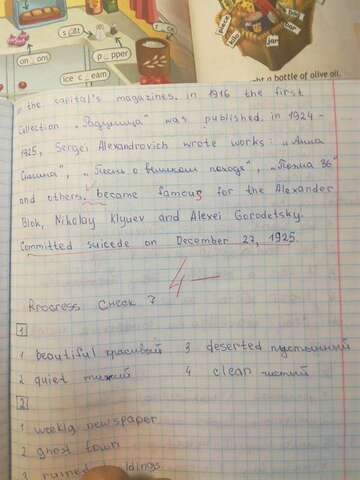 s a t
r ce
on on
p pper
ice c eam
place
kilo
jar
bar
ht a bottle of olive oil.
the capital's magazines. in 1916 the first
collection „Радуница" was published. in 1924-
1925, Sergei Alexandrovich wrote works: „Анна
Снегина", „Песнь о великом походе", „Поэма 36"
and others, became famous for the Alexander
Blok, Nikolay Klyuev and Alexei Gorodetsky.
Committed suicede on December 27, 1925.
4-
Progress Check 7
1
1 beautiful красивый 3 deserted пустынный
2 quiet тихий 4 clean чистый
2
1 weekly newspaper
2 ghost town
3 ruined ldings